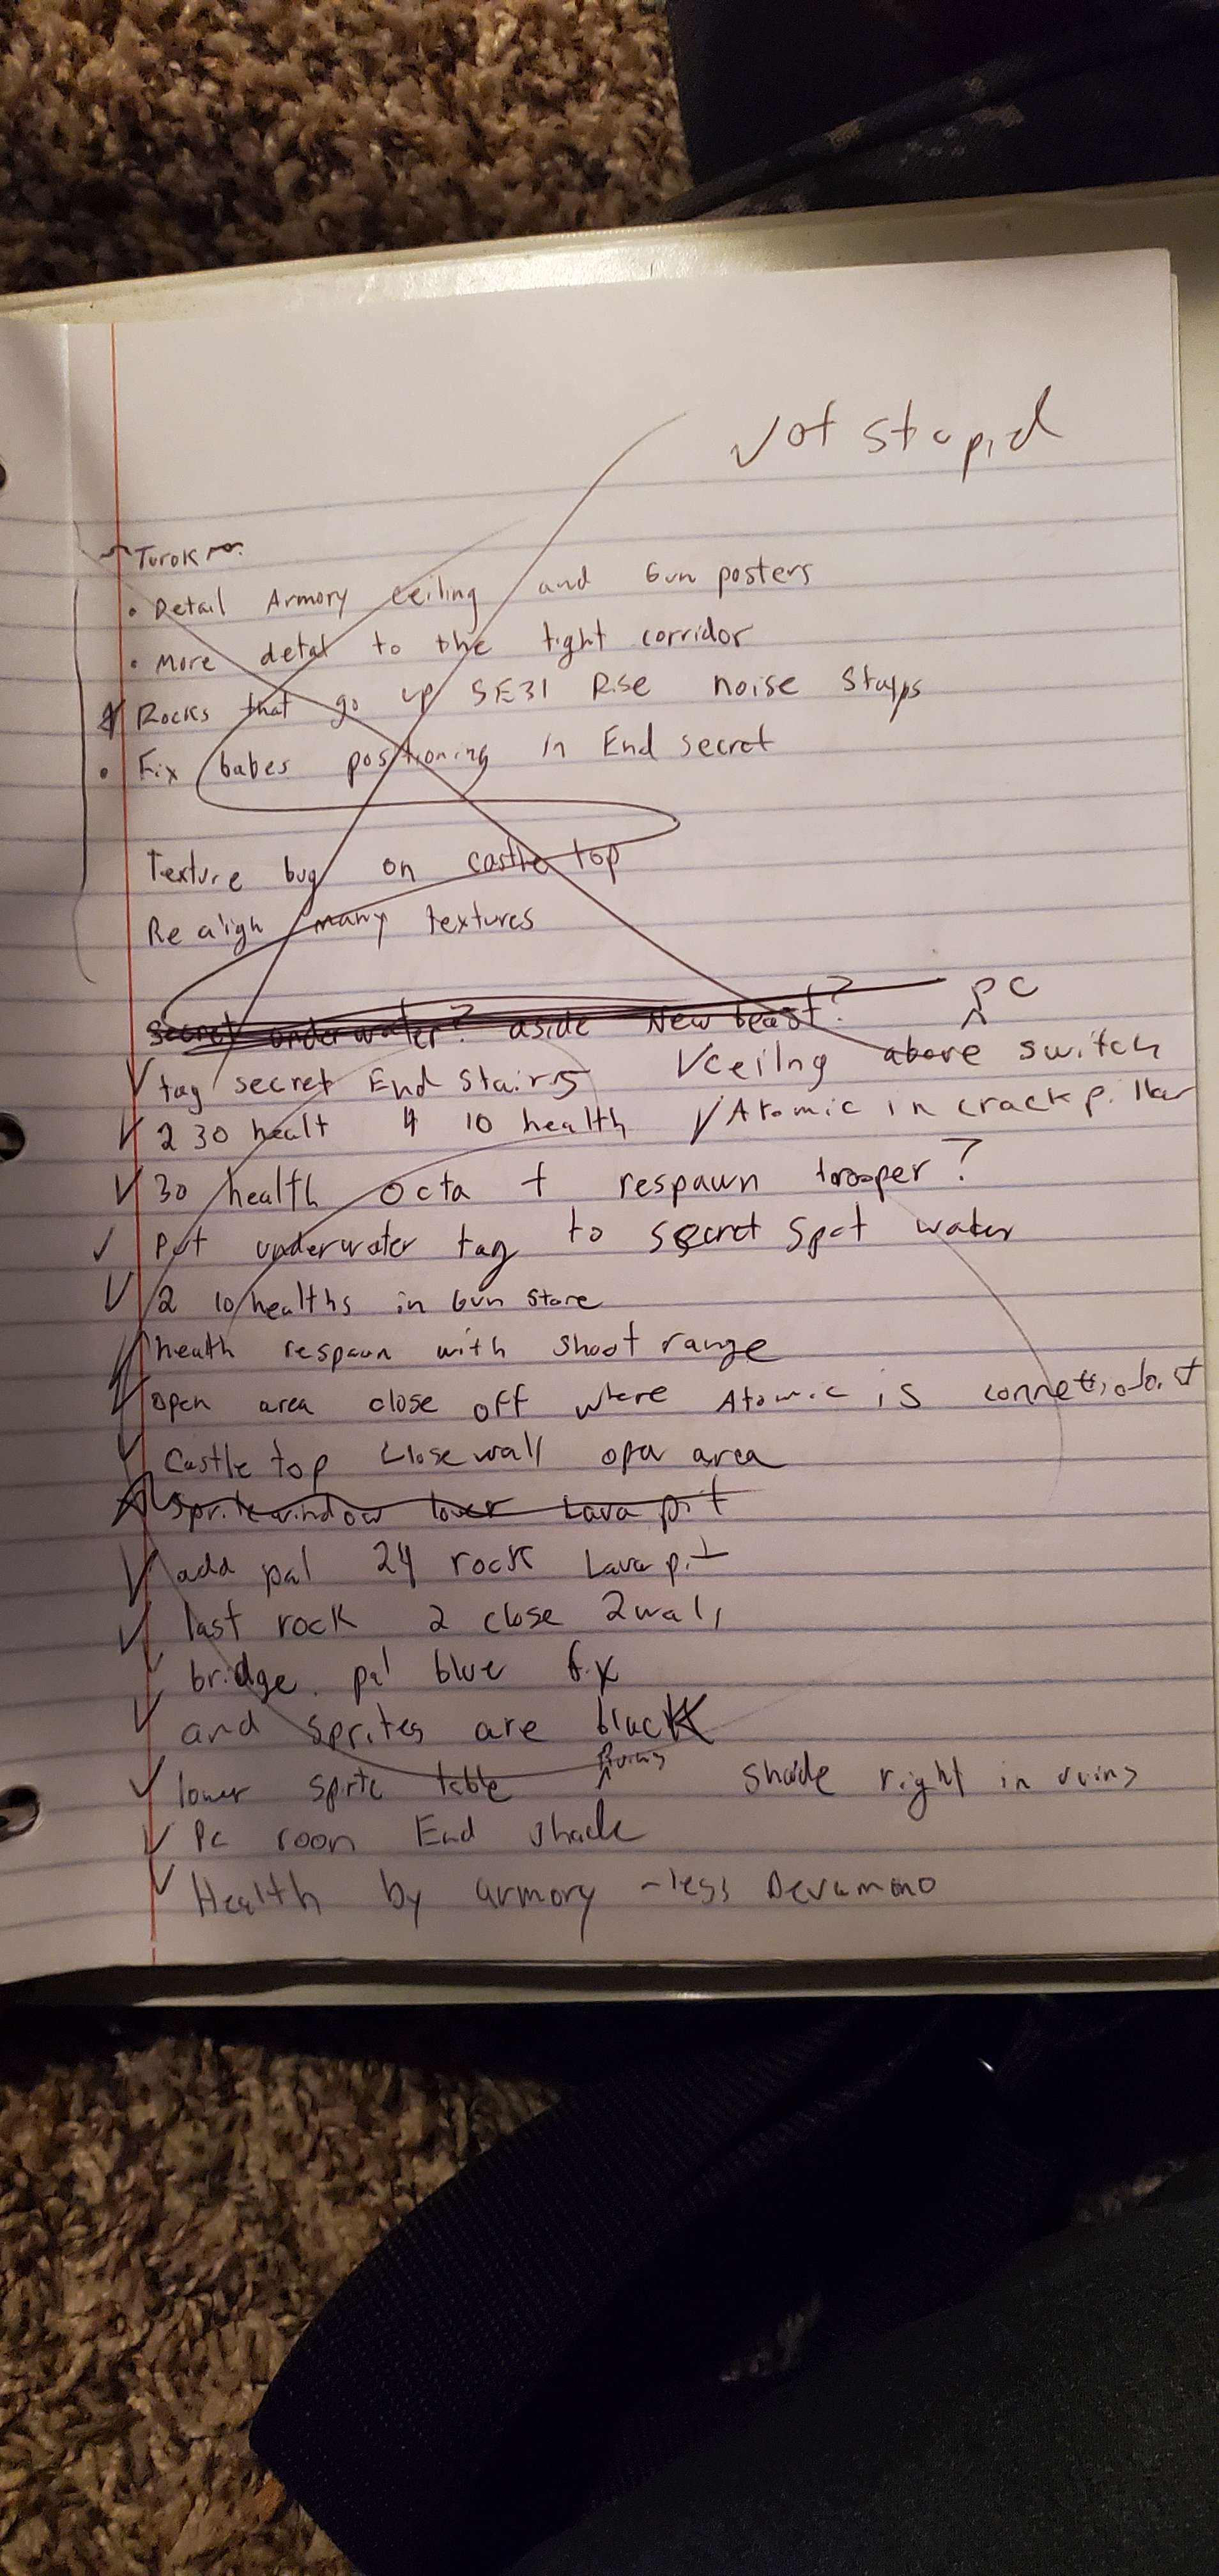 Not stupid
Turok
• Detail Armory ceiling and Gun posters
• More detal to the tight corridor
Rocks that go up SE31 Rise noise stays
• Fix babes positioning in End secret
Texture bug on castle top
Re align many textures
Secret underwater? aside New beast? PC
✓ tag secret End stairs ✓ ceilng above switch
✓ 2 30 healt 4 10 health ✓ Atomic in crack pillar
✓ 30 health octa + respawn trooper?
✓ Put underwater tag to secret spot water
✓ 2 10 healths in Gun store
health respawn with shoot range
✓ open area close off where Atomic is
✓ Castle top close wall open area
Sprite window lower Lava pit
✓ add pal 24 rock Lava pit
✓ last rock 2 close 2 wall
✓ bridge pal blue fix
✓ and sprites are black
✓ lower sprite table Ruins shade right in ruins
✓ PC room End shade
✓ Health by armory - less Devammo